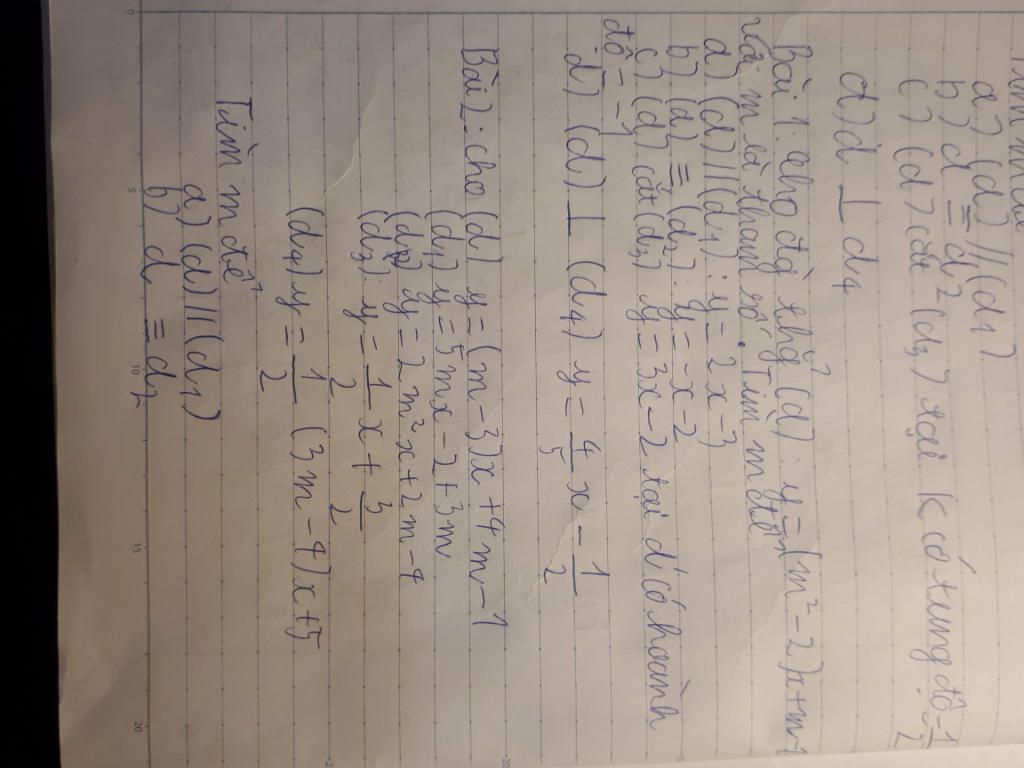 a) (d) // (d1)
b) d ≡ d2
c) (d) cắt (d3) tại K có tung độ 1/2
d) d ⊥ d4
Bài 1: cho đg thẳng (d): y = (m² - 2)x + m - 1
Với m là tham số. Tìm m để
a) (d) // (d1): y = 2x - 3
b) (d) ≡ (d2): y = -x - 2
c) (d) cắt (d3) y = 3x - 2 tại d' có hoành
độ = -1
d) (d) ⊥ (d4) y = 4/5 x - 1/2
Bài 2: cho (d) y = (m - 3)x + 4m - 1
(d1) y = 5mx - 2 + 3m
(d2) y = 2m²x + 2m - 4
(d3): y = 1/2 x + 3/2
(d4) y = 1/2 (3m - 4)x + 5
Tìm m để
a) (d) // (d1)
b) d ≡ d2